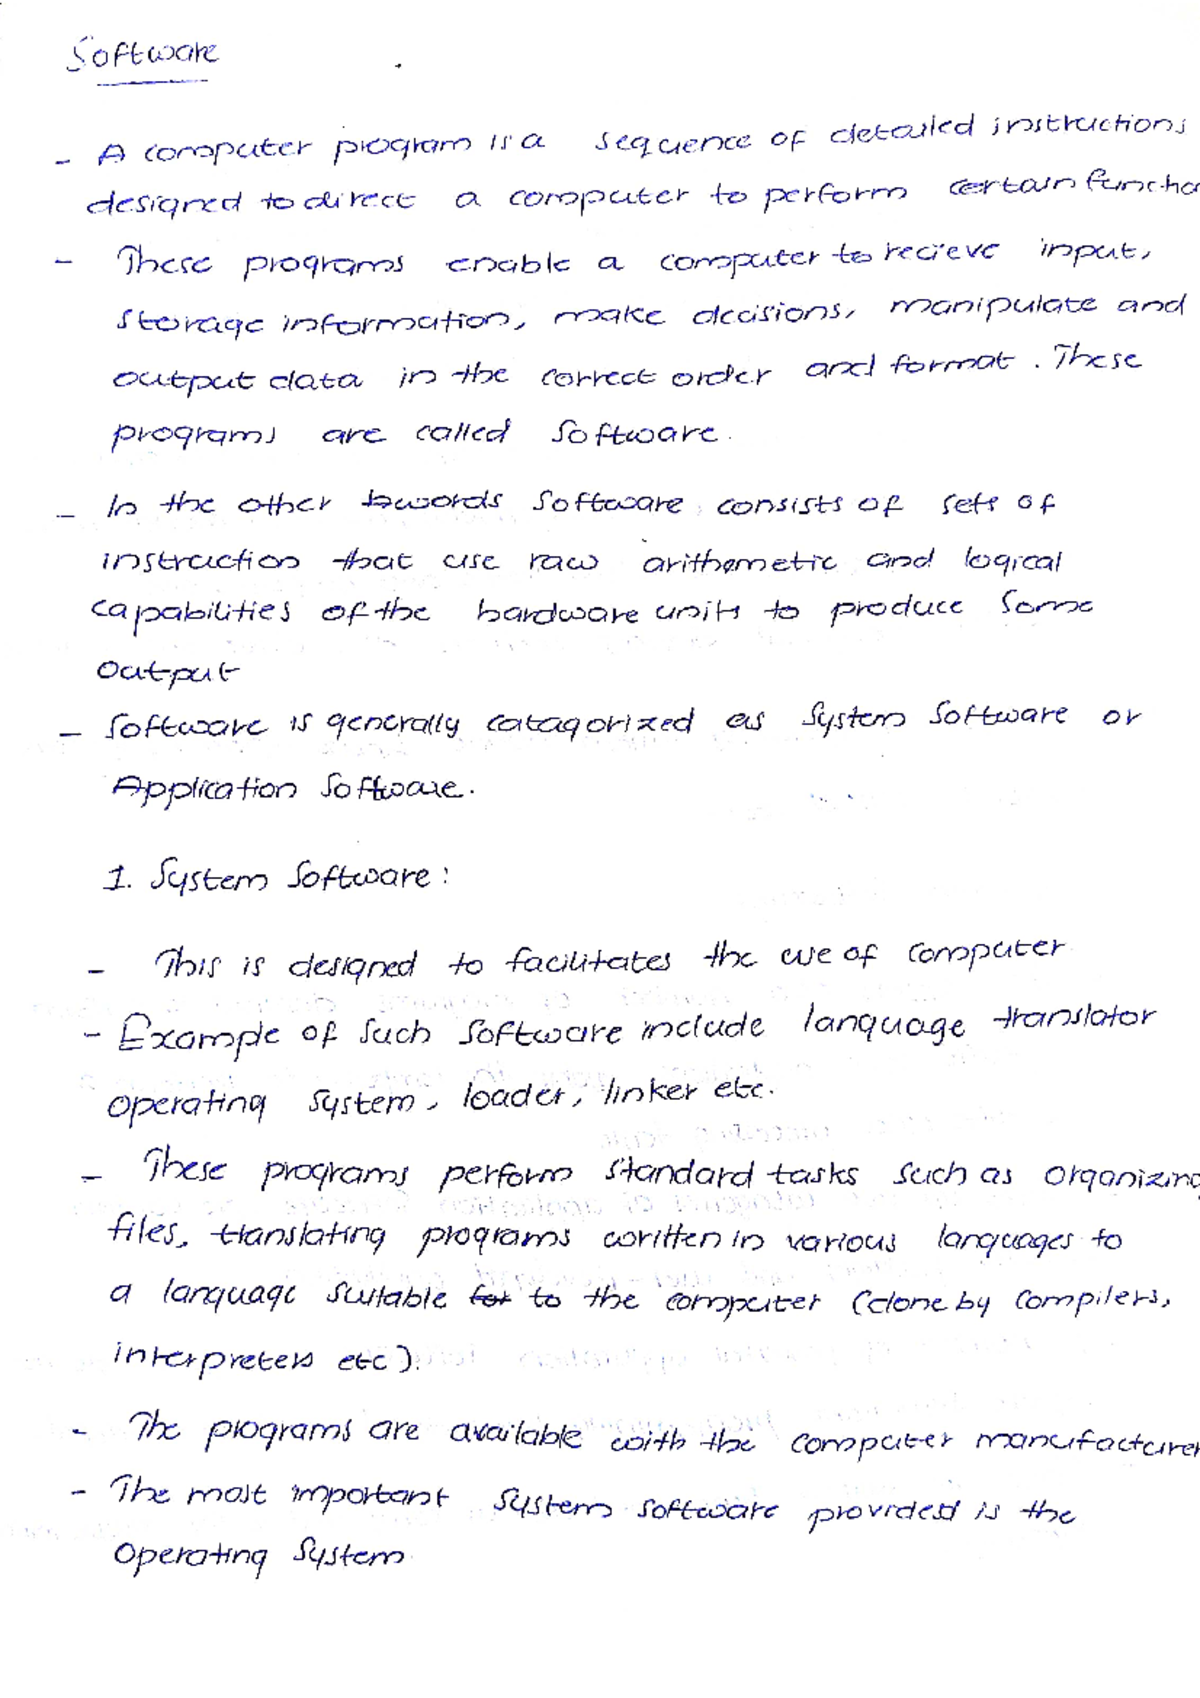 Software
- A computer program is a sequence of detailed instructions
designed to direct a computer to perform certain functio
- These programs enable a computer to recieve input,
storage information, make decisions, manipulate and
output data in the correct order and format. These
programs are called Software.
- In the other words Software consists of sets of
instruction that use raw arithemetic and logical
capabilities of the hardware units to produce Some
Output
- Software is generally catagorized as System Software or
Application Software.
1. System Software:
- This is designed to facilitates the use of Computer
- Example of Such Software include language translator
Operating System, loader, linker etc.
- These programs perform Standard tasks Such as Organizing
files, translating programs written in various languages to
a language Suitable for to the computer (done by Compilers,
interpreters etc).
- The programs are available with the Computer manufacturer
- The most important System Software provided is the
Operating System